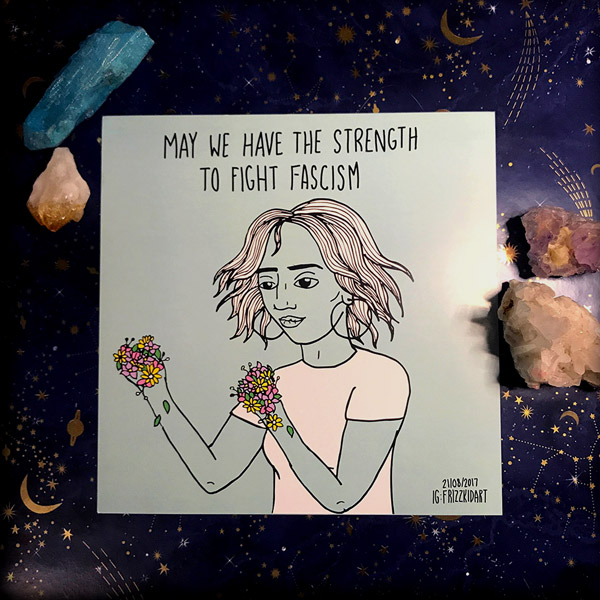 MAY WE HAVE THE STRENGTH
TO FIGHT FASCISM
21/08/2017
IG:FRIZZKIDART